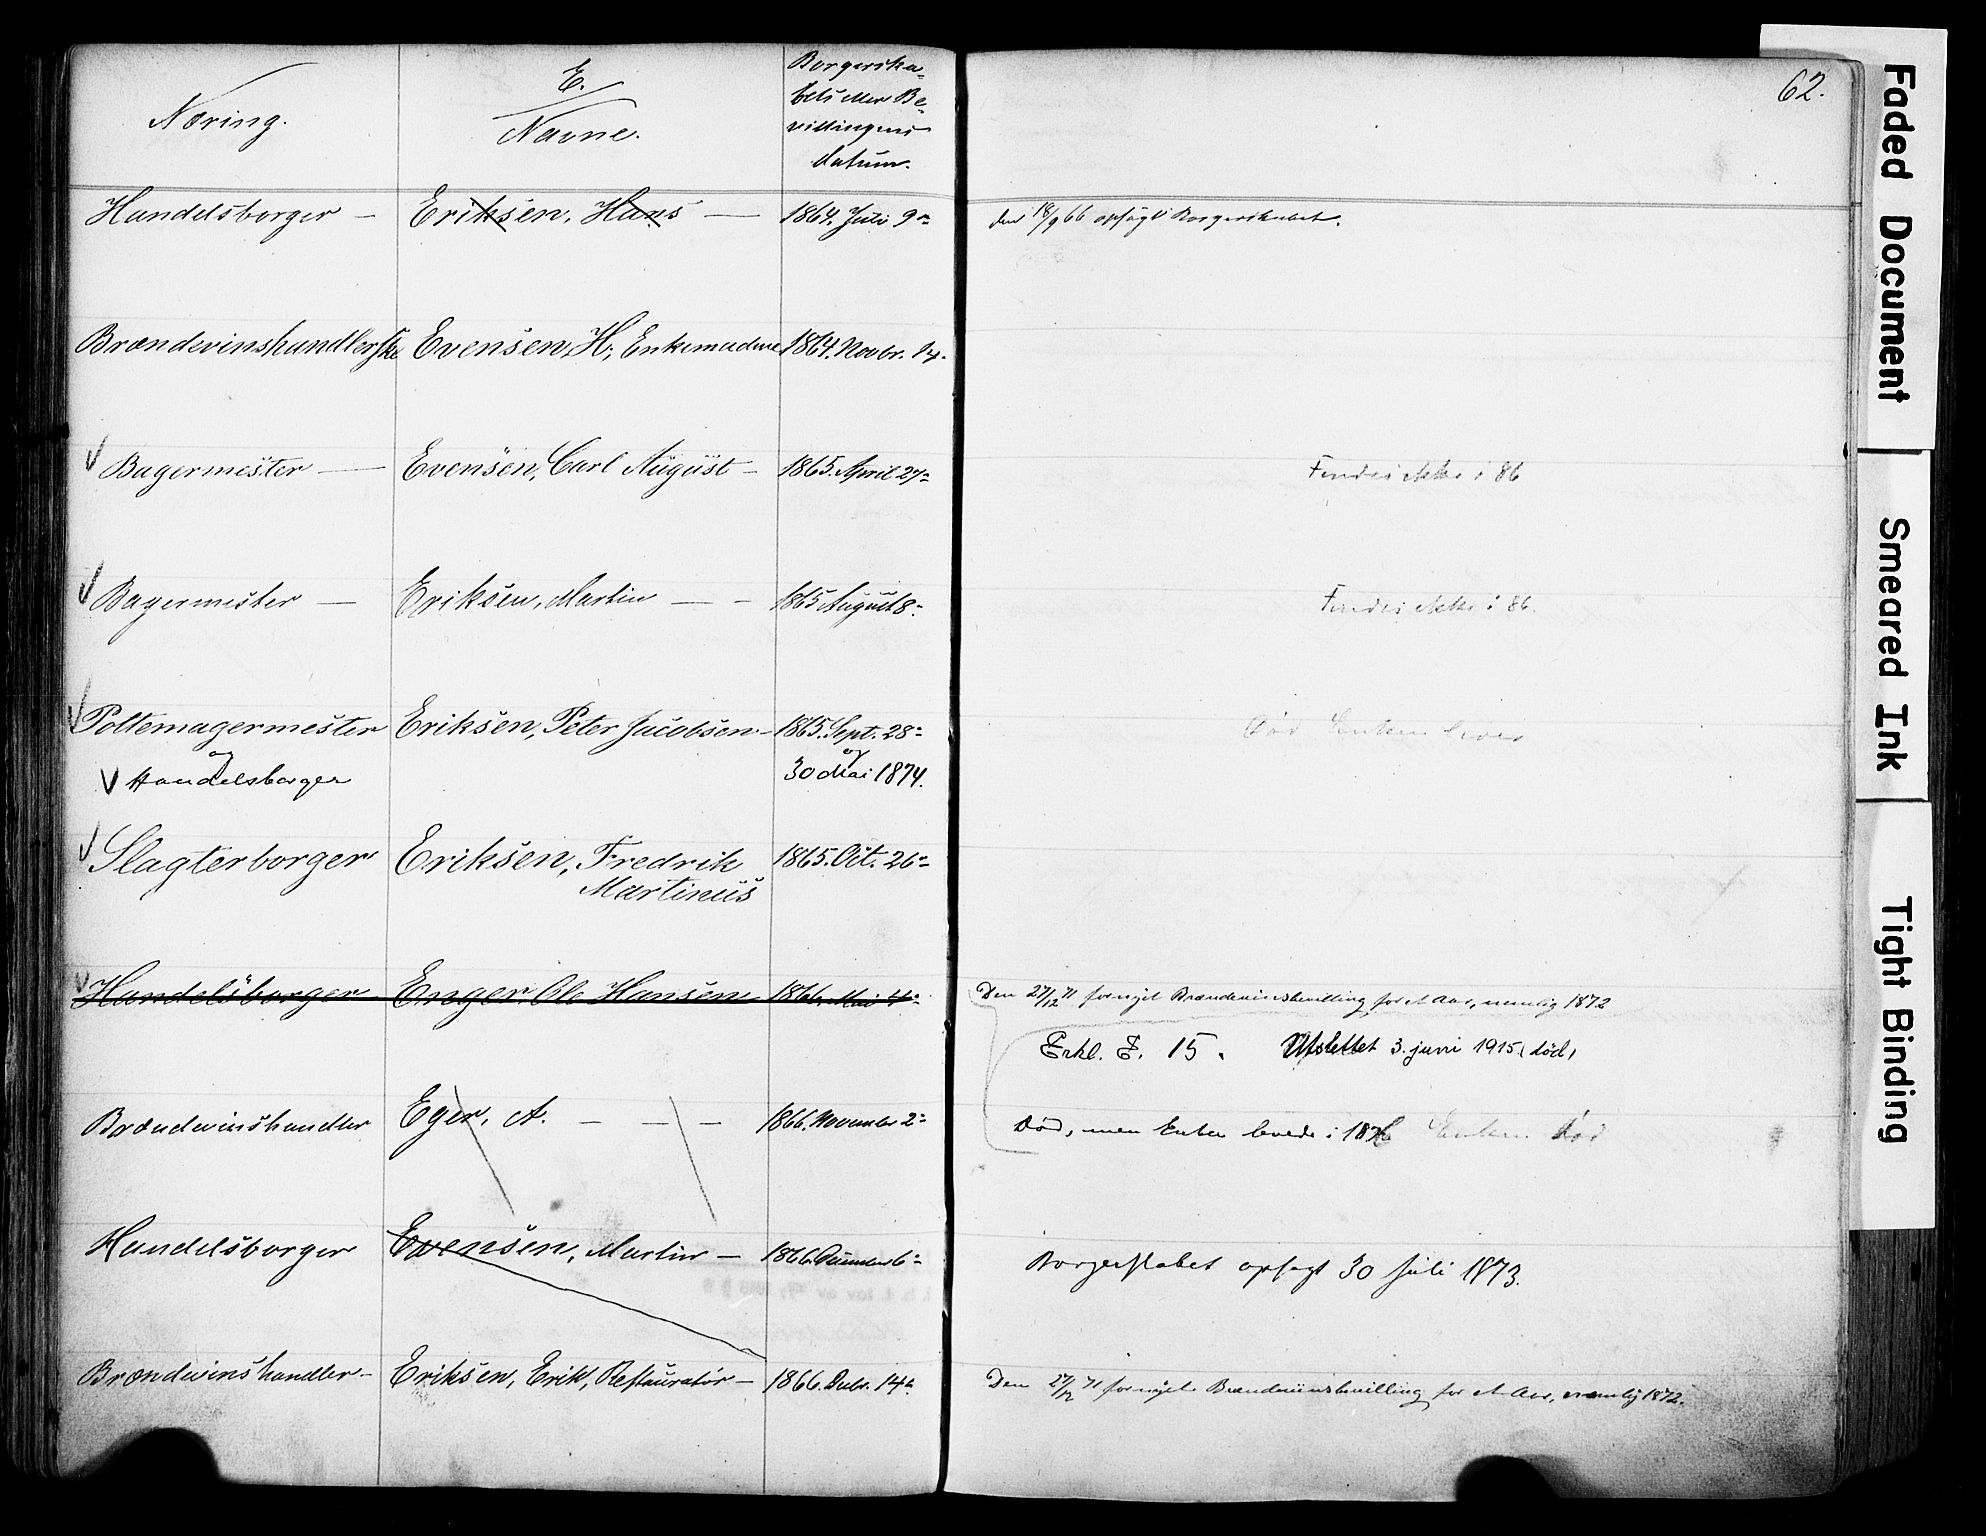 E.
Næring.
Navne.
Borgerska-
bets eller Be-
villingens
datum.
62.
Handelsborger — Eriksen, Hans — 1864. Juli 9de
den 18/9 66 opsagt Borgerskabet.
Brændevinshandlerske Evensen, H., Enkemadme 1864. Novbr. 14.
V Bagermester — Evensen, Carl August — 1865. April 27de
Findes ikke i 86
V Bagermester — Eriksen, Martin — — 1865 August 8de
Findes ikke i 86.
V Pottemagermester Eriksen, Peter Jacobsen — 1865. Sept. 28de
Død Enken lever
og og
V Handelsborger 30 Mai 1874.
V Slagterborger Eriksen, Fredrik 1865. Oct. 26de
Martinus
V Handelsborger Enger, Ole Hansen 1866. Mai 4de
Den 27/12 71 fornyet Brændevinsbevilling for et Aar, nemlig 1872
Erkl. F. 15. Utslettet 3. juni 1915 (død)
Brændevinshandler Eger, A. — — — 1866. November 2de
Død, men Enken levede i 1876 Enken død
Handelsborger Evensen, Martin — 1866. 6te
Borgerskabet opsagt 30 Juli 1873.
Brændevinshandler — Eriksen, Erik, Restauratør — 1866. Decbr. 14de
Den 27/12 71 fornyet Brændevinsbevilling for et Aar, nemlig 1872.
Faded Document
Smeared Ink
Tight Binding